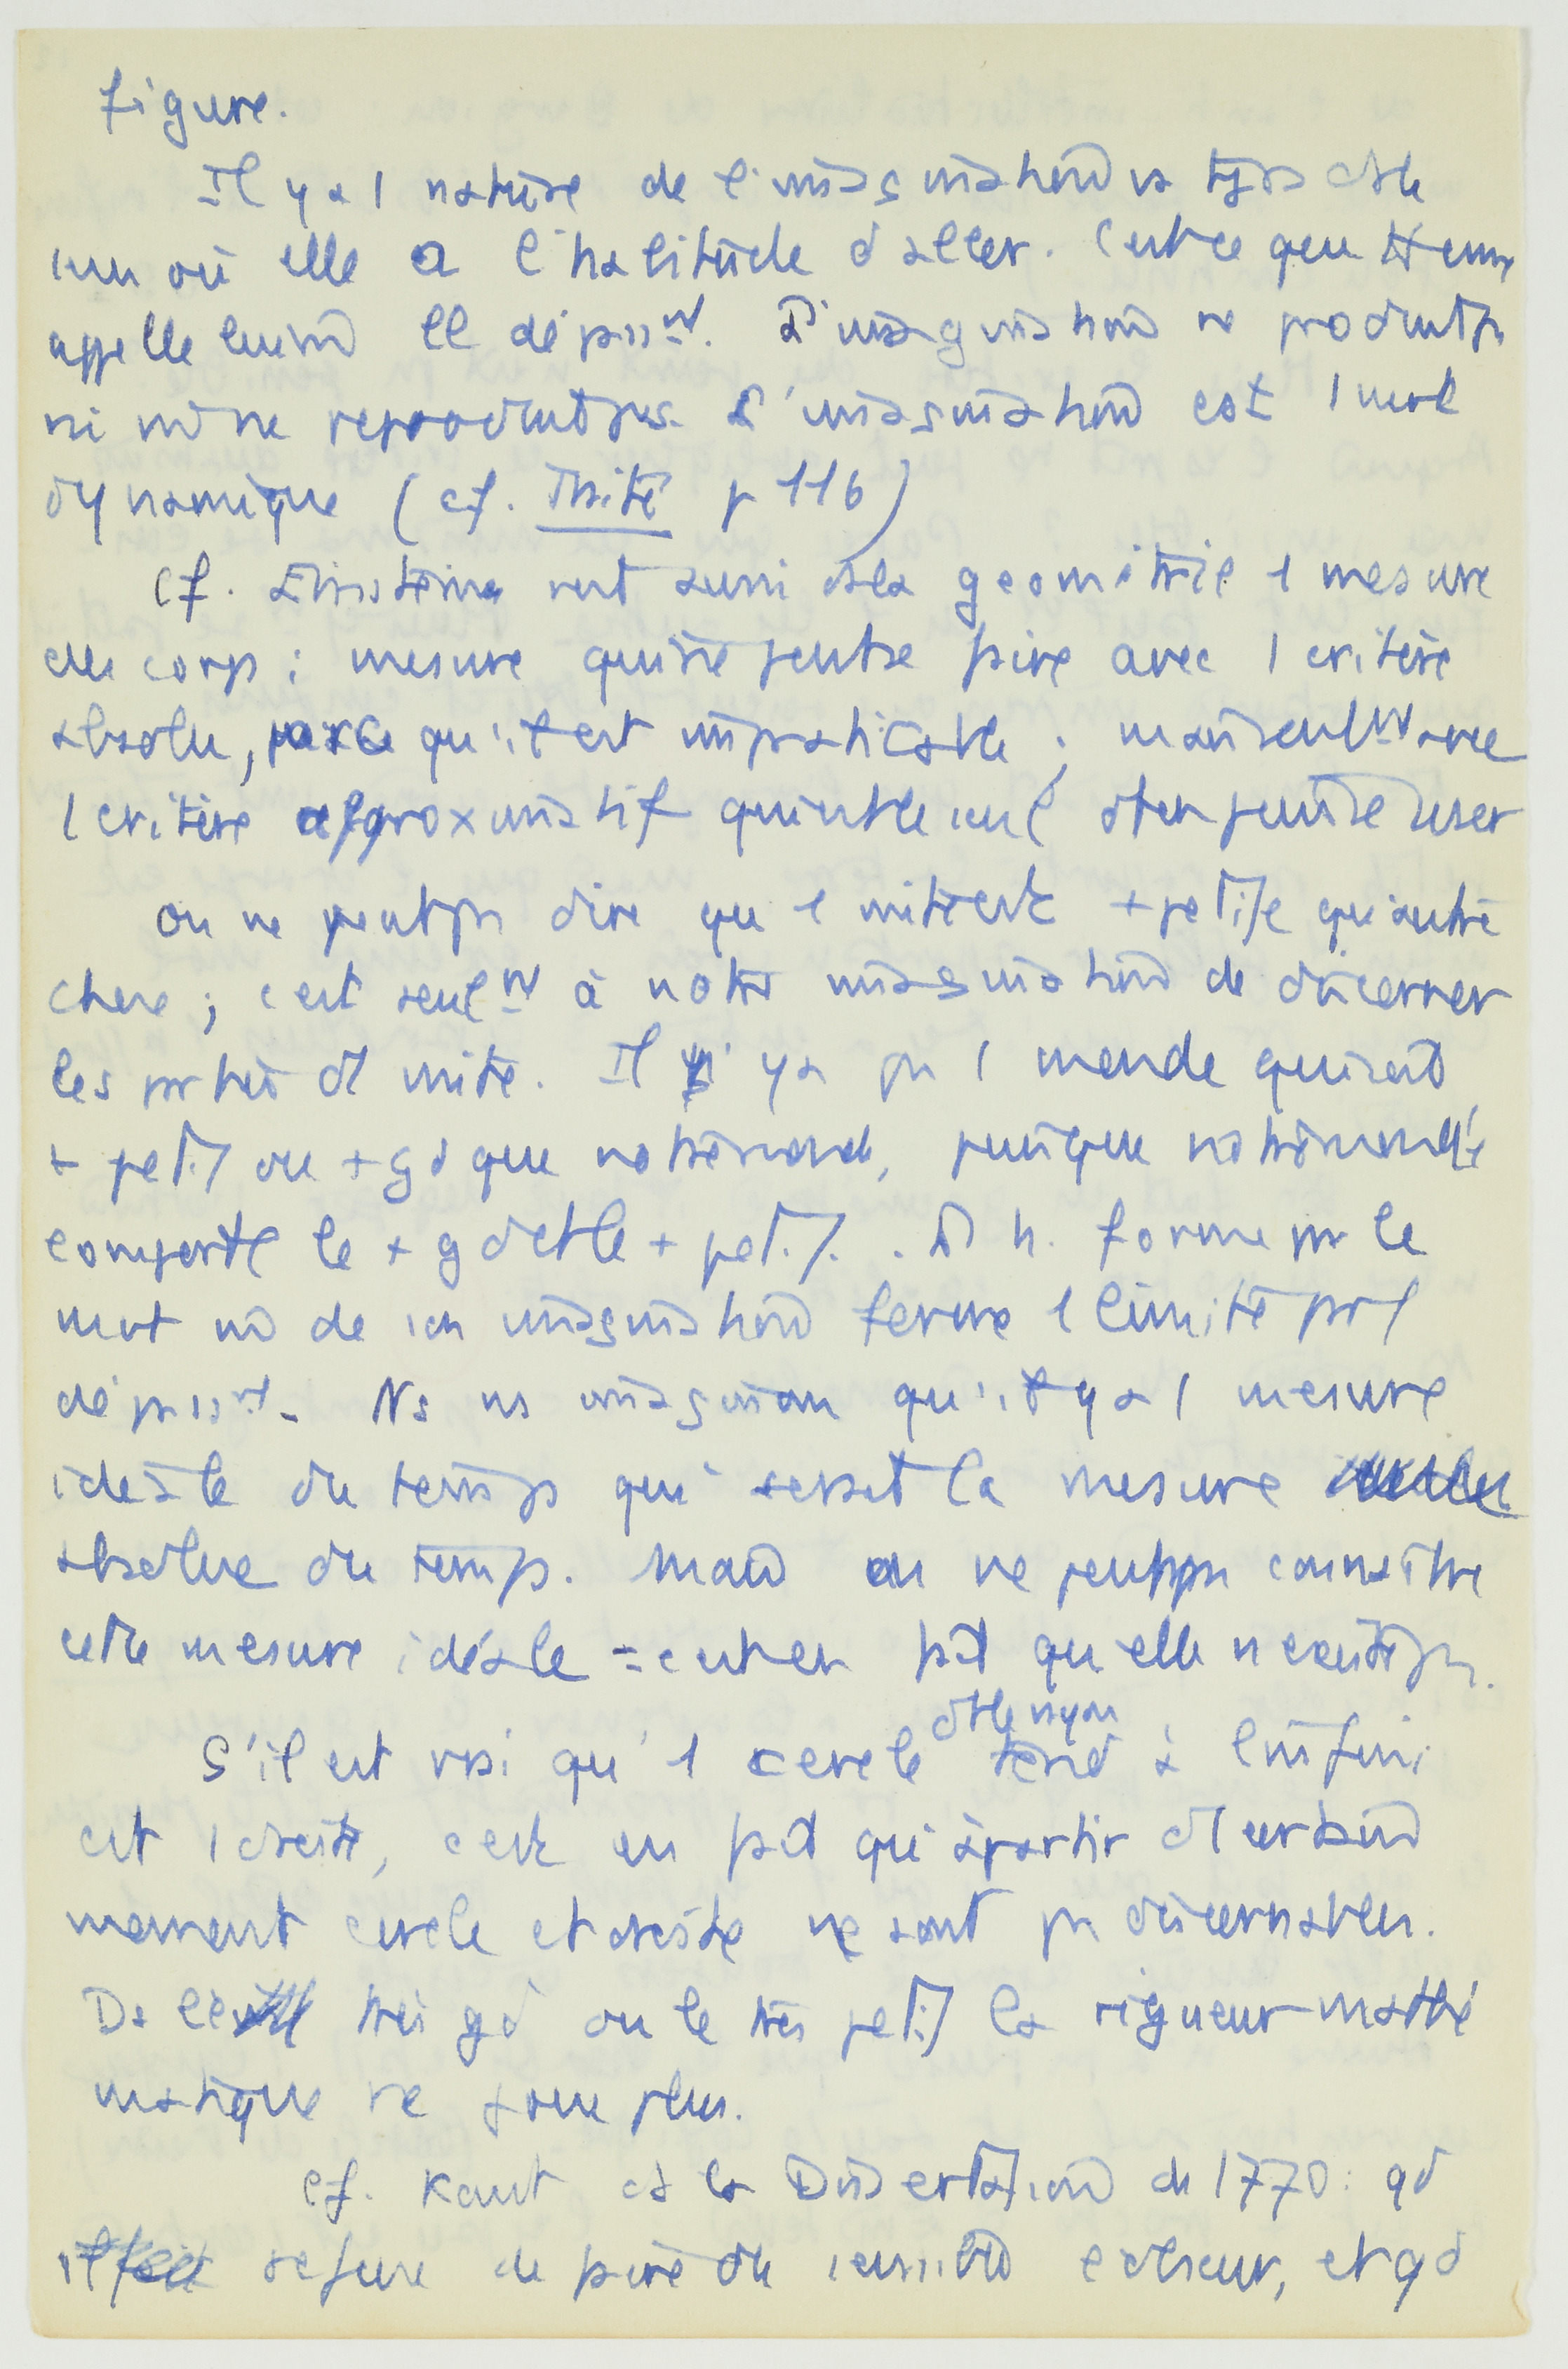 figure.
Il y a 1 nature de l'imagination
où elle a l'habitude d'aller. C'est ce que Hume
appelle dépasst. L'imagination ne produit pas
ni ne reproduit pas. L'imagination est 1 mot
dynamique (cf. Traité p 116)
Cf. Einstein géométrie 1 mesure
des corps : mesure qui ne peut se faire avec 1 critère
absolu, parce qu'il est impraticable ; mais seulmt avec
1 critère approximatif
On ne peut pas dire qu'1 unité est + petite qu'autre
chose ; c'est seulmt à notre imagination de discerner
les parties d'1 unité. Il n'y a pas 1 monde qui soit
+ petit ou + gd que notre monde, puisque notre monde
comporte le + gd et le + petit. . forme par le
mot de son imagination ferme 1 limite par 1
dépasst. Ns ns imaginons qu'il y a 1 mesure
idéale du temps qui serait la mesure
absolue du temps. Mais on ne peut pas connaître
cette mesure idéale = c'est en fait qu'elle n'existe pas.
S'il est vrai qu'1 cercle dt le rayon tend à l'infini
est 1 droite, c'est en fait qu'à partir d'1 certain
moment cercle et droite ne sont pas discernables.
Ds le très gd ou le très petit la rigueur mathé
matique ne joue plus.
Cf. Kant ds la Dissertation de 1770 : qd
il refuse de faire du sensible extérieur, et qd